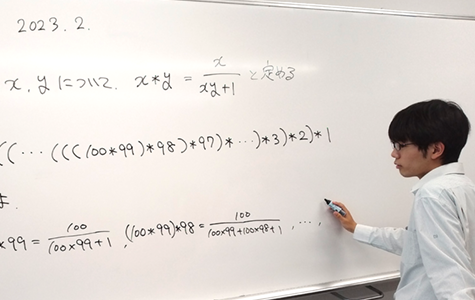 2023.2.
x, yについて. x*y = x/(xy+1) と定める
((⋯(((100*99)*98)*97)*⋯)*3)*2)*1
は.
*99 = 100/(100×99+1), (100*99)*98 = 100/(100×99+100×98+1), ⋯,